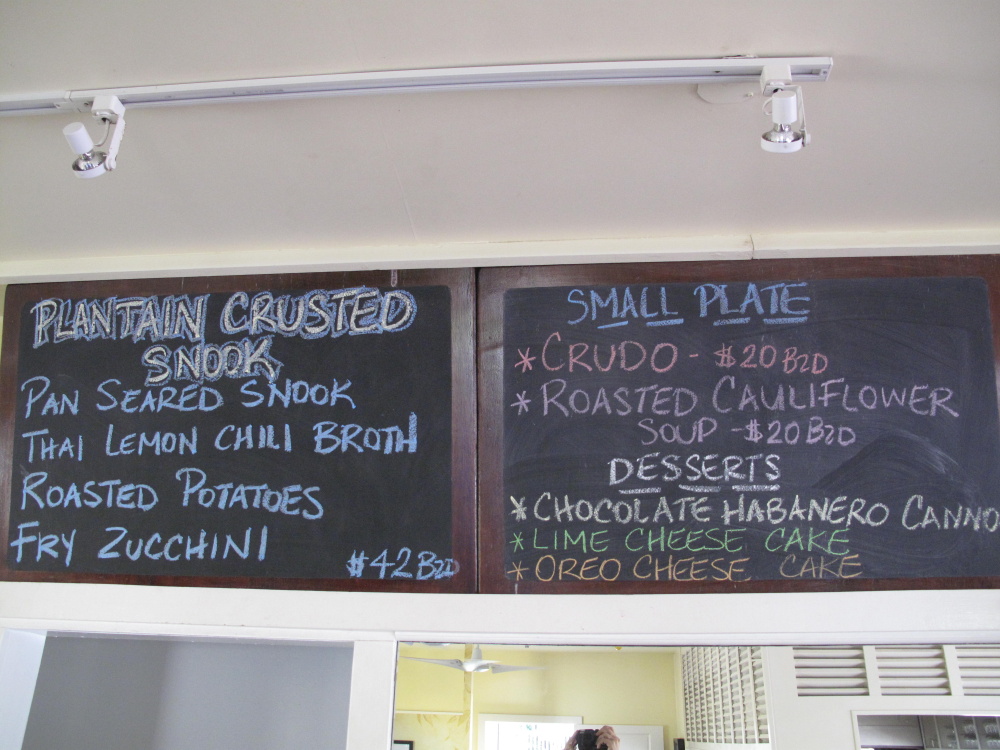 PLANTAIN CRUSTED
SNOOK
PAN SEARED SNOOK
THAI LEMON CHILI BROTH
ROASTED POTATOES
FRY ZUCCHINI
$42 BZD
SMALL PLATE
* CRUDO - $20 BZD
* ROASTED CAULIFLOWER
SOUP - $20 BZD
DESSERTS
* CHOCOLATE HABANERO CANNO
* LIME CHEESE CAKE
* OREO CHEESE CAKE